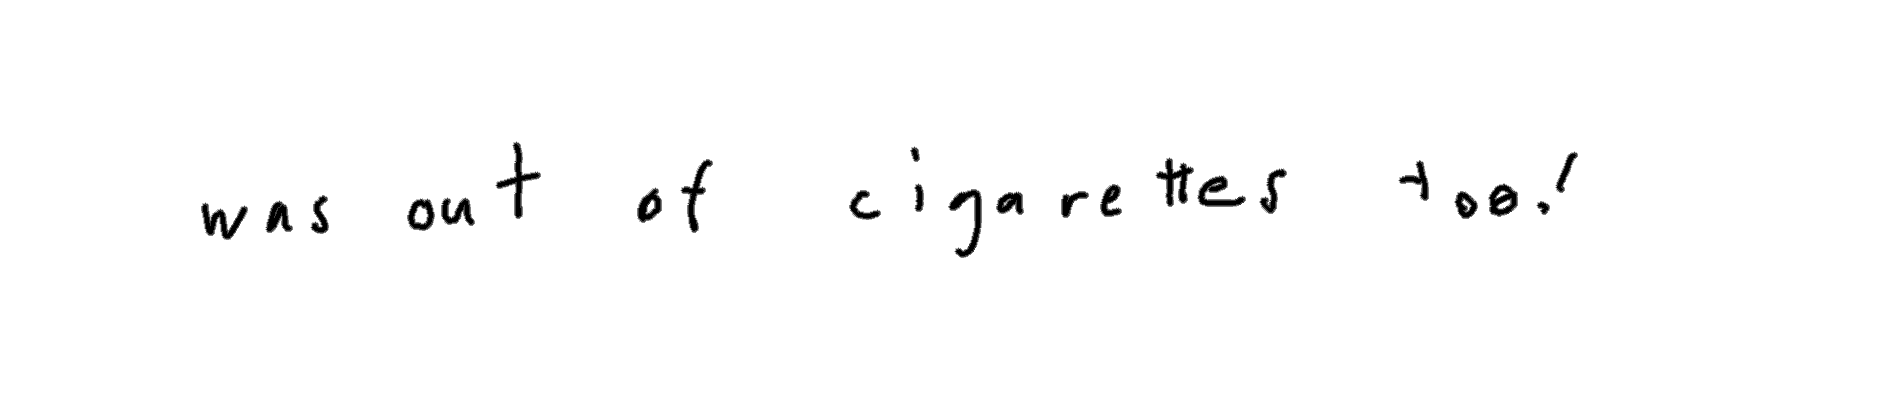 was out of cigarettes too!